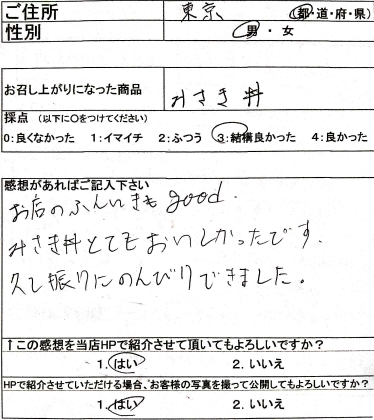 ご住所 東京 (都・道・府・県)
性別 男・女
お召し上がりになった商品 みさき丼
採点 (以下に○をつけてください)
0:良くなかった 1:イマイチ 2:ふつう 3:結構良かった 4:良かった
感想があればご記入下さい
お店のふんいきも good.
みさき丼とてもおいしかったです.
久し振りにのんびりできました。
↑この感想を当店HPで紹介させて頂いてもよろしいですか?
1.はい 2.いいえ
HPで紹介させていただける場合、お客様の写真を撮って公開してもよろしいですか?
1.はい 2.いいえ